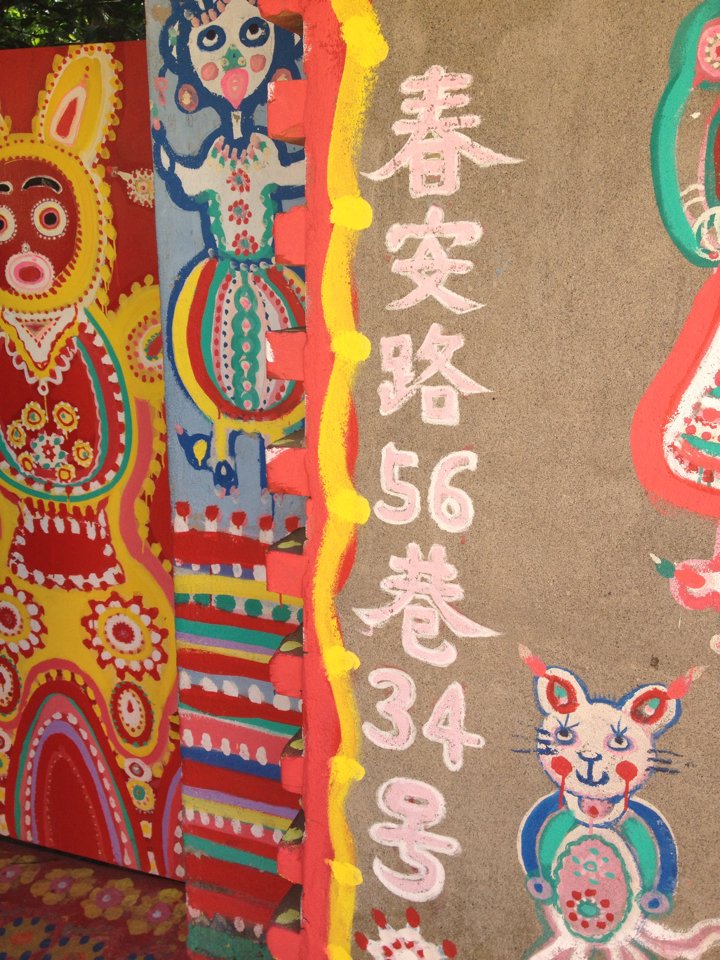 春安路56巷34号